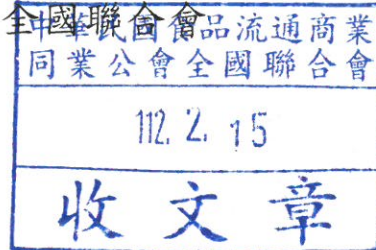 全國聯合會
中華民國食品流通商業
同業公會全國聯合會
112. 2. 15
收文章